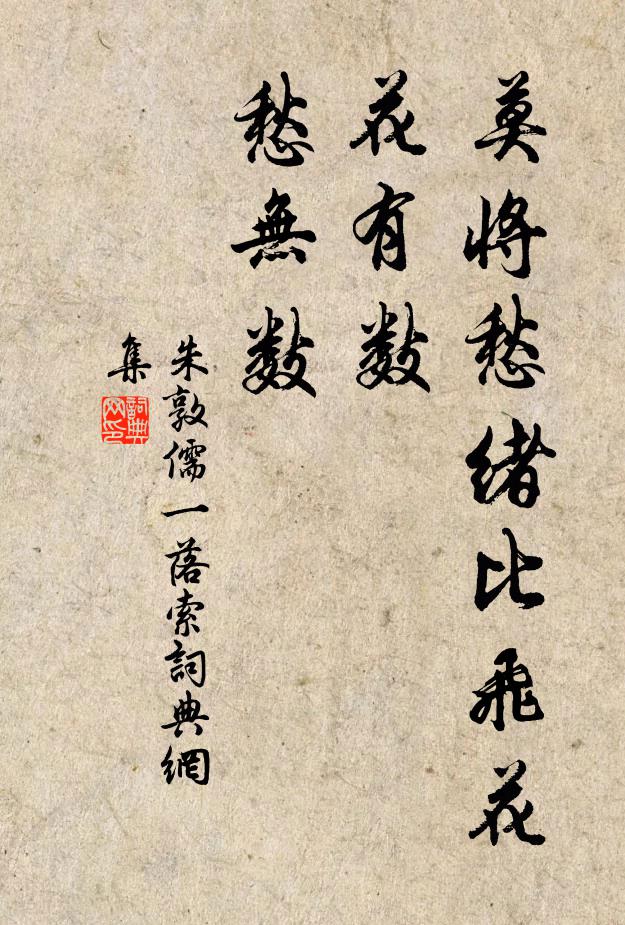 莫將愁緒比飛花
花有數
愁無數
朱敦儒一落索詞典網
集
詞典
网印